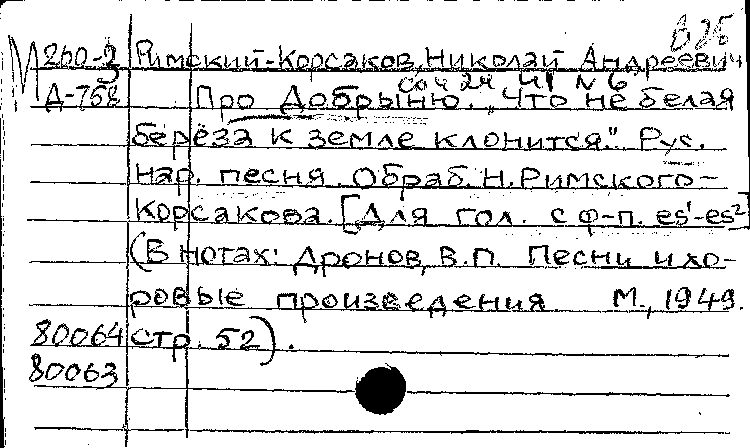 В25
М 260-2 Римский-Корсаков, Николай Андреевич
соч 24 ч1 N 6
Д-758 Про Добрыню. „Что не белая
берёза к земле клонится." Рус.
нар. песня. Обраб. Н. Римского-
Корсакова. [Для гол. с ф-п. es¹-es²]
(В нотах: Дронов, В.П. Песни и хо-
ровые произведения М., 1949.
80064 стр. 52).
80063